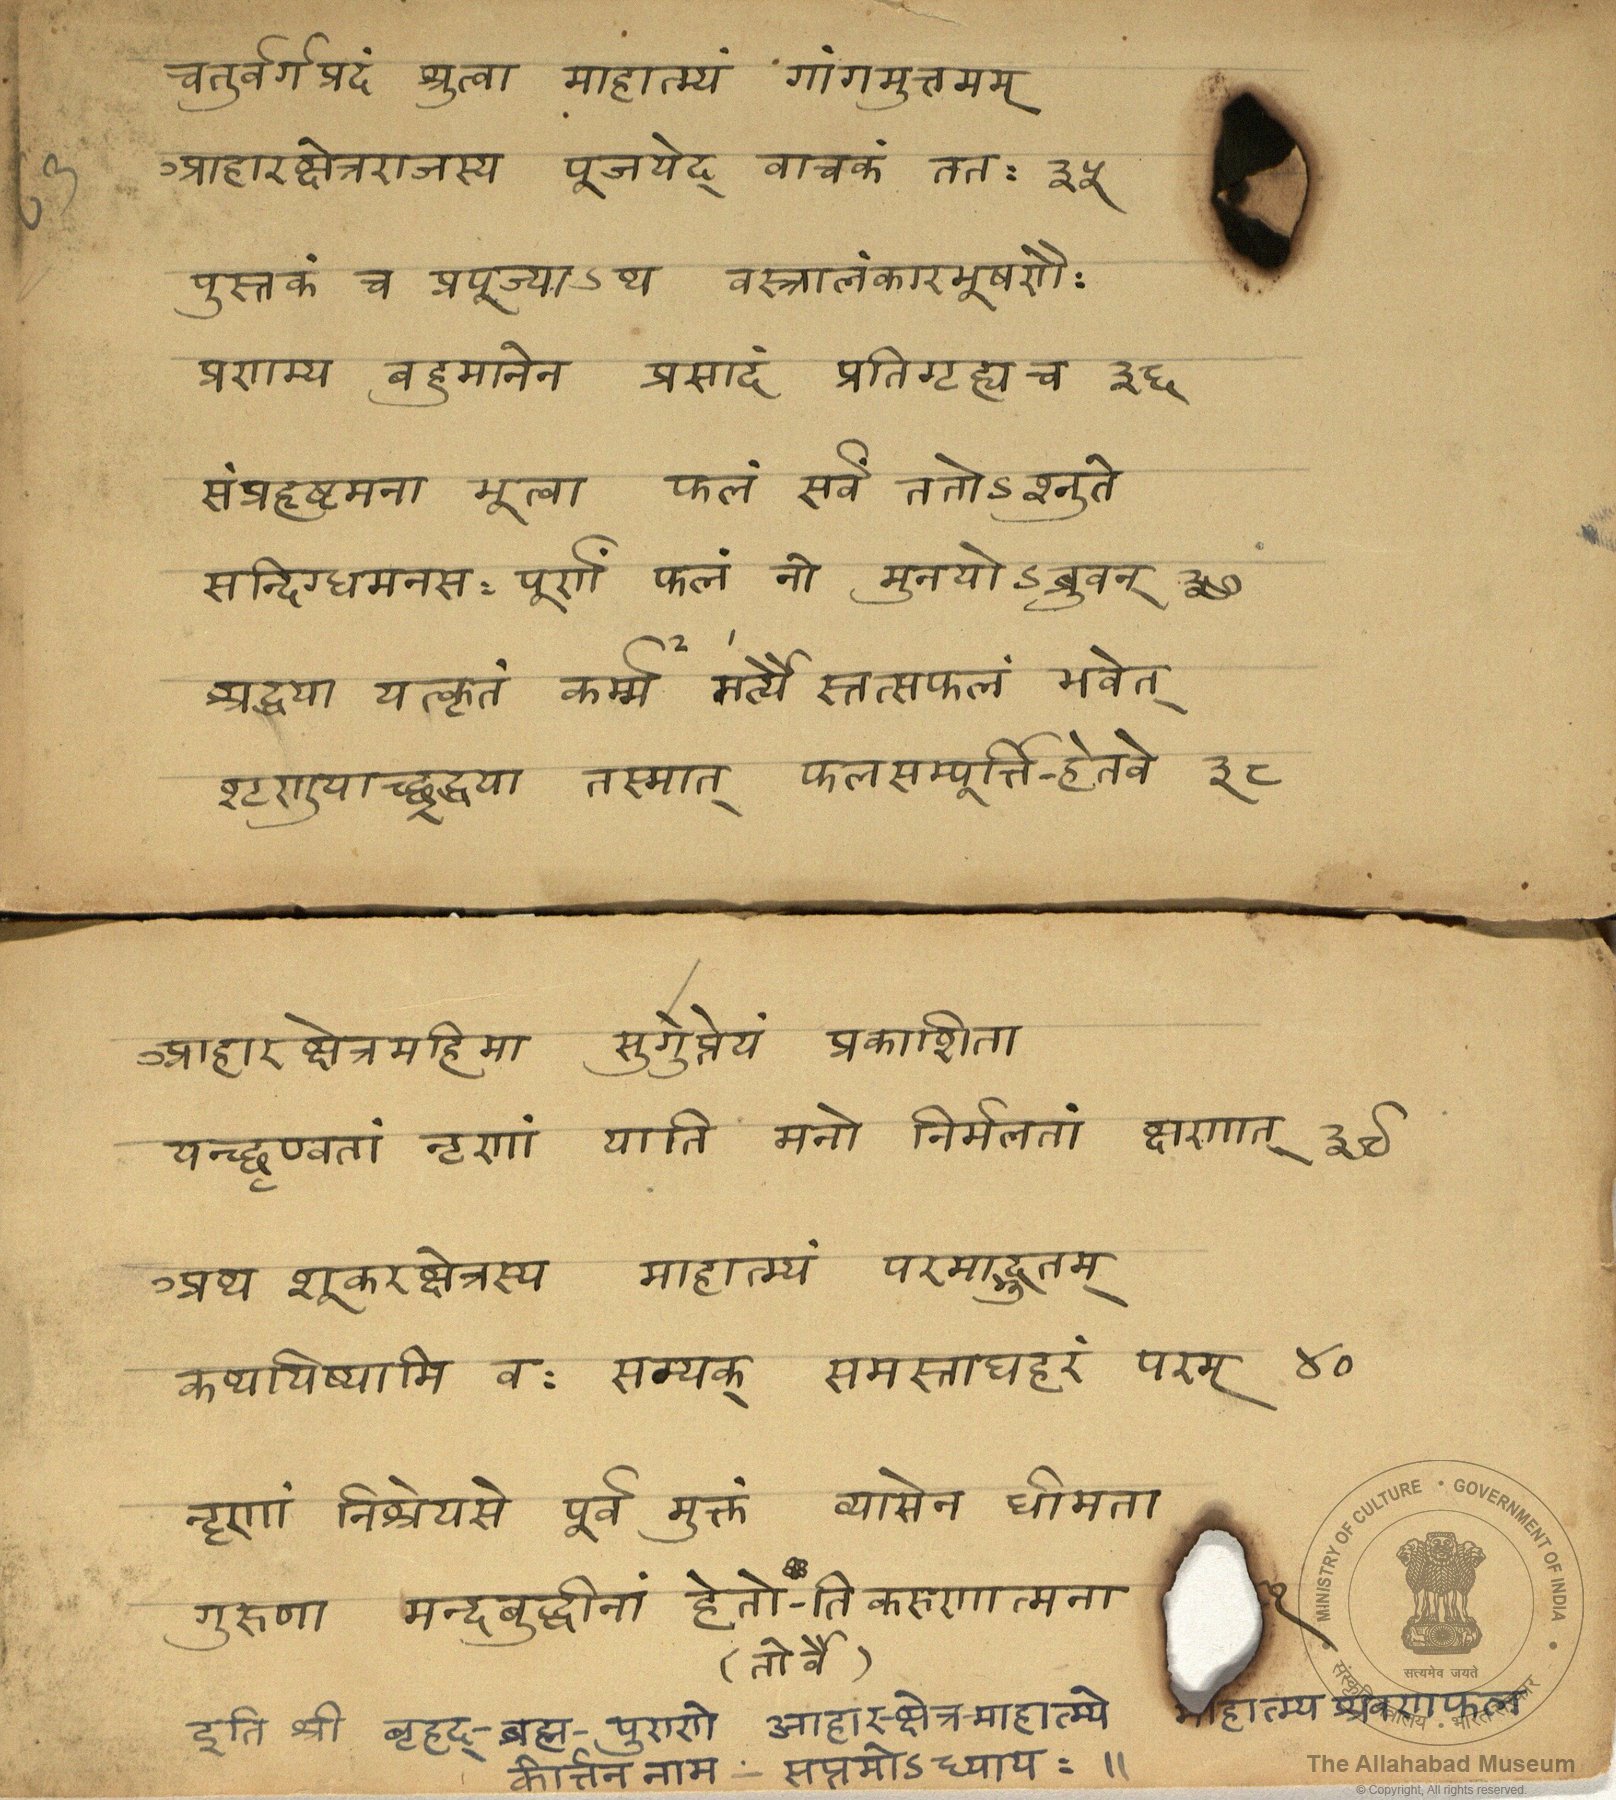 चतुर्वर्गप्रदं श्रुत्वा माहात्म्यं गांगमुत्तमम्
आहारक्षेत्रराजस्य पूजयेद् वाचकं ततः ३५
पुस्तकं च प्रपूज्याऽथ वस्त्रालंकारभूषणैः
प्रणम्य बहुमानेन प्रसादं प्रतिगृह्य च ३६
संप्रहृष्टमना भूत्वा फलं सर्वं ततोऽश्नुते
सन्दिग्धमनसः पूर्णं फलं नो मुनयोऽब्रुवन् ३७
श्रद्धया यत्कृतं कर्म्म २ १ मर्त्यै स्तत्सफलं भवेत्
शृणुयाच्छ्रद्धया तस्मात् फलसम्पूर्त्ति-हेतवे ३८
आहारक्षेत्रमहिमा सुगुप्तेयं प्रकाशिता
यच्छृण्वतां नृणां याति मनो निर्मलतां क्षणात् ३९
अथ शूकरक्षेत्रस्य माहात्म्यं परमाद्भुतम्
कथयिष्यामि वः सम्यक् समस्ताघहरं परम् ४०
नृणां निश्रेयसे पूर्व मुक्तं व्यासेन धीमता
गुरुणा मन्दबुद्धीनां हेतो-तिकरुणात्मना १
(तोर्वै)
इति श्री बृहद्-ब्रह्म-पुराणे आहार-क्षेत्र-माहात्म्ये माहात्म्य श्रवणफल
कीर्त्तन नाम - सप्तमोऽध्यायः ॥
MINISTRY OF CULTURE • GOVERNMENT OF INDIA
सत्यमेव जयते
The Allahabad Museum
© Copyright, All rights reserved.